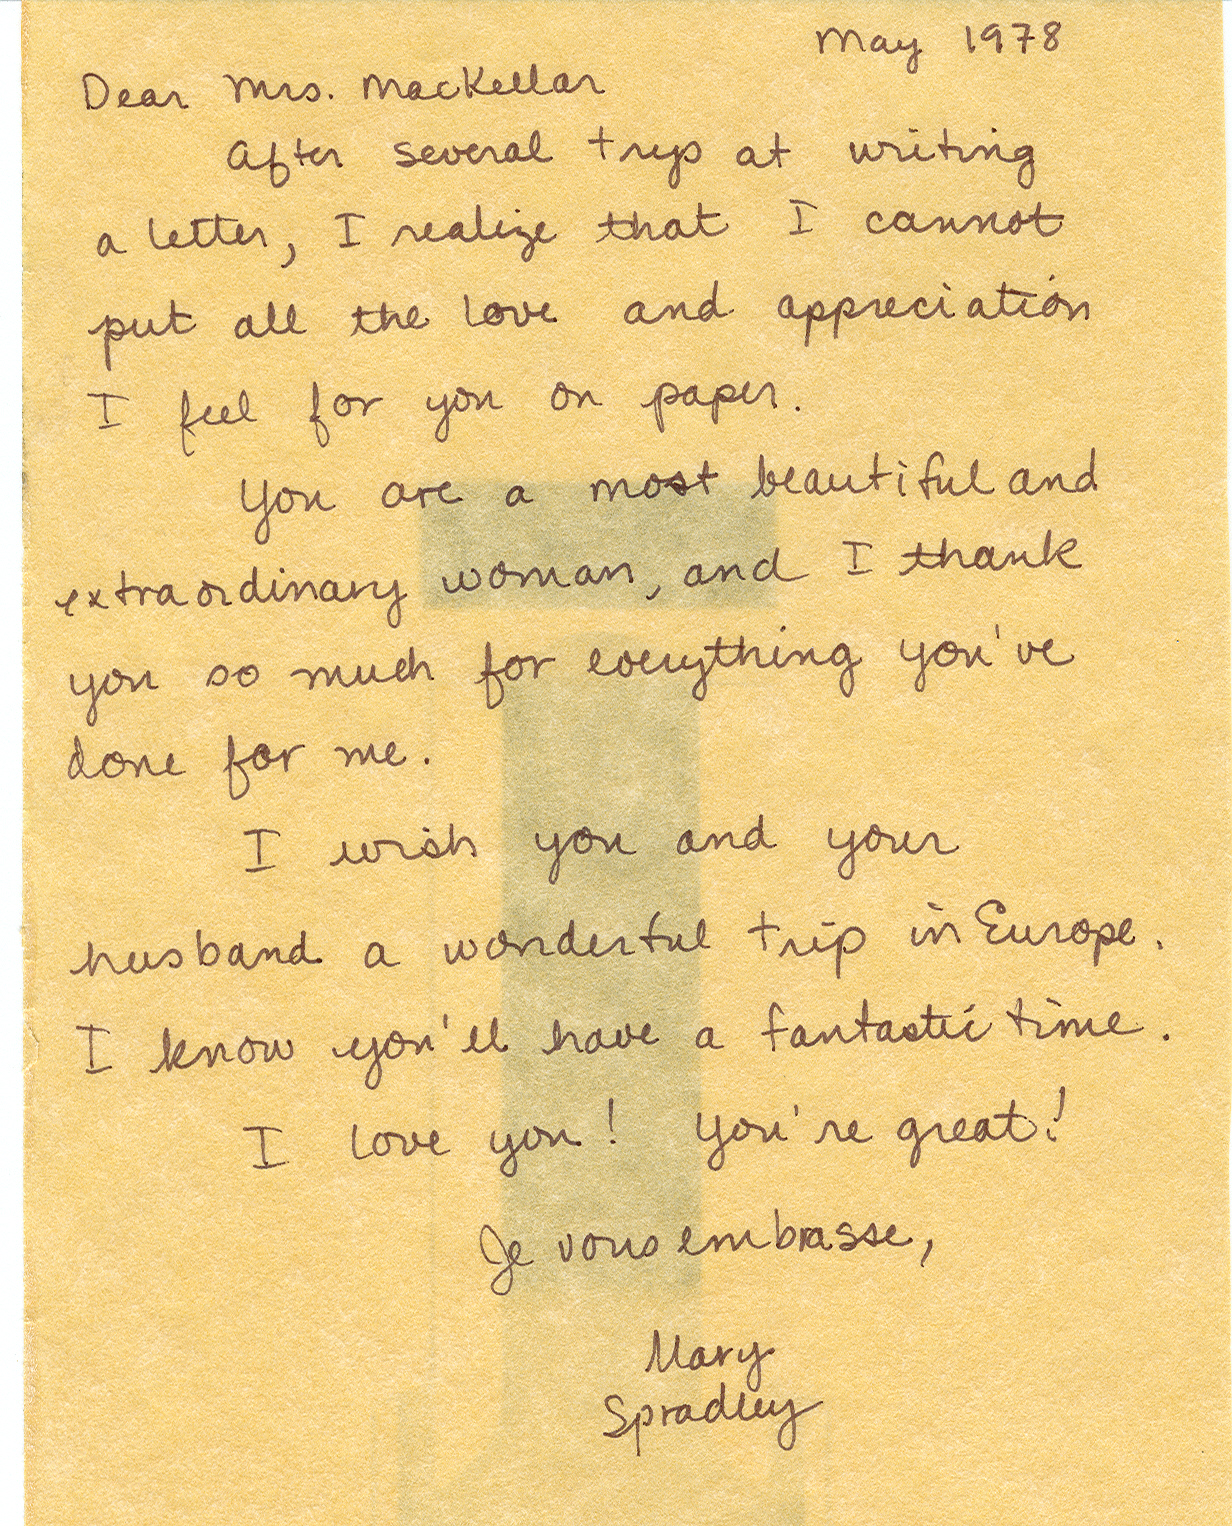 May 1978
Dear Mrs. MacKellar
After several trys at writing
a letter, I realize that I cannot
put all the love and appreciation
I feel for you on paper.
You are a most beautiful and
extraordinary woman, and I thank
you so much for everything you've
done for me.
I wish you and your
husband a wonderful trip in Europe.
I know you'll have a fantastic time.
I love you! You're great!
Je vous embrasse,
Mary
Spradley